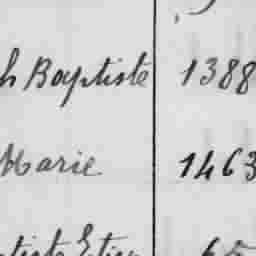 h Baptiste 1388
Marie 1463
tiste Etien 65